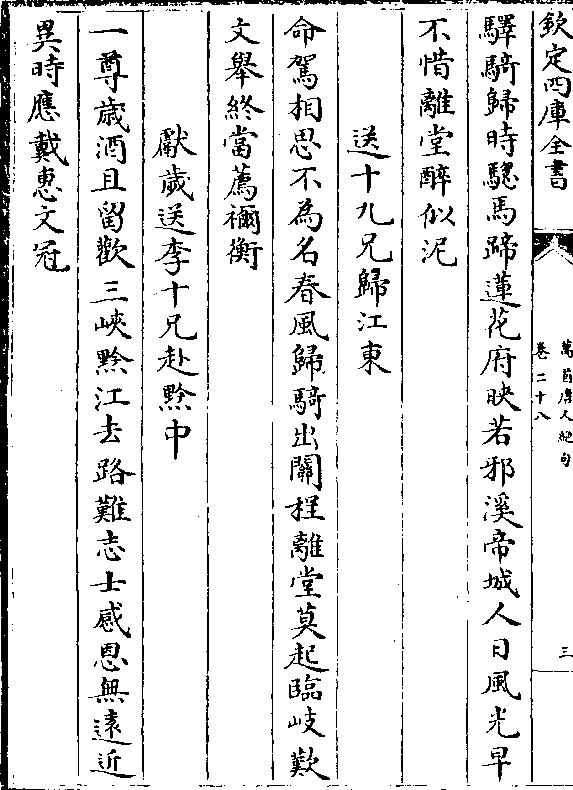 欽定四庫全書
萬首唐人絶句
卷二十八
三
驛騎歸時驄馬蹄蓮花府映若邪溪帝城人日風光早
不惜離堂醉似泥
送十九兄歸江東
命駕相思不為名春風歸騎出關程離堂莫起臨岐歎
文舉終當薦禰衡
獻歲送李十兄赴黔中
一尊歲酒且留歡三峽黔江去路難志士感恩無遠近
異時應戴惠文冠